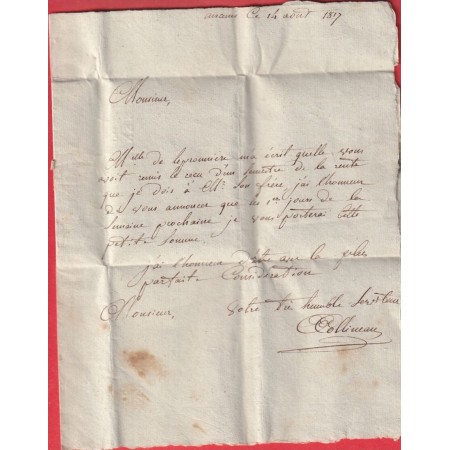 ancenis Ce 14 août 1817
Monsieur,
Melle de lepronniere m'a écrit quelle vous
avoit remis le recu d'un semestre de la rente
que je dois à Mr. Son frère, j'ai l'honneur
de vous annoncer que les 1ers jours de la
Semaine prochaine je vous porterai cette
petite Somme
j'ai l'honneur d'être avec la plus
parfaite Consideration
Monsieur, votre très humble Serviteur
Collineau